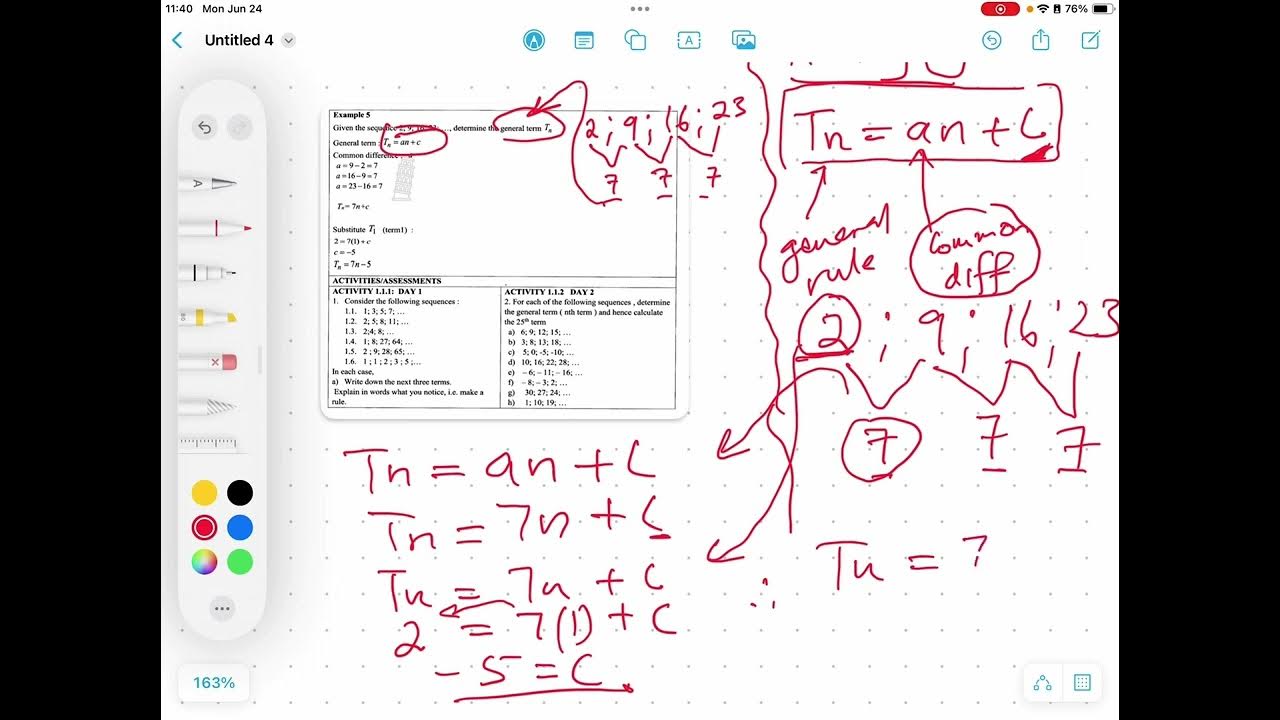 11:40 Mon Jun 24
76%
Untitled 4
Example 5
Given the sequence 2; 9; 16; 23; ..., determine the general term Tn
General term : Tn = an + c
Common difference = a
a = 9 – 2 = 7
a = 16 – 9 = 7
a = 23 – 16 = 7
Tn = 7n + c
Substitute T1 (term1) :
2 = 7(1) + c
c = –5
Tn = 7n – 5
ACTIVITIES/ASSESSMENTS
ACTIVITY 1.1.1: DAY 1
1. Consider the following sequences :
1.1. 1; 3; 5; 7; ...
1.2. 2; 5; 8; 11; ...
1.3. 2;4; 8; ...
1.4. 1; 8; 27; 64; ...
1.5. 2 ; 9; 28; 65; ...
1.6. 1 ; 1 ; 2 ; 3 ; 5 ;...
In each case,
a) Write down the next three terms.
Explain in words what you notice, i.e. make a
rule.
ACTIVITY 1.1.2 DAY 2
2. For each of the following sequences , determine
the general term ( nth term ) and hence calculate
the 25th term
a) 6; 9; 12; 15; ...
b) 3; 8; 13; 18; ...
c) 5; 0; -5; -10; ...
d) 10; 16; 22; 28; ...
e) – 6; – 11; – 16; ...
f) – 8; – 3; 2; ...
g) 30; 27; 24; ...
h) 1; 10; 19; ...
2 ; 9 ; 16 ; 23
7 7 7
Tn = an + c
general
rule
Common
diff
2 ; 9 ; 16 ; 23
7 7 7
Tn = an + c
Tn = 7n + c
Tn = 7n + c
2 = 7(1) + c
-5 = c
∴ Tn = 7
163%